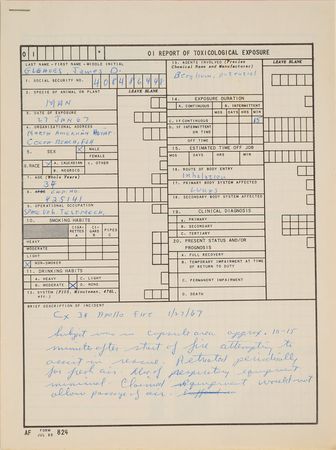 01
OI REPORT OF TOXICOLOGICAL EXPOSURE
LAST NAME - FIRST NAME - MIDDLE INITIAL
Gleaves, James D.
1. SOCIAL SECURITY NO.
2. SPECIE OF ANIMAL OR PLANT
LEAVE BLANK
MAN
3. DATE OF EXPOSURE
27 JAN 67
4. ORGANIZATIONAL ADDRESS
North American Aviat
Cocoa Beach, Fla
5. SEX
MALE
FEMALE
6. RACE
A. CAUCASIAN
C. OTHER
B. NEGROID
7. AGE (Whole Years)
34
425141
9. OPERATIONAL OCCUPATION
10. SMOKING HABITS
CIGARETTES
CIGARS
PIPES
HEAVY
MODERATE
LIGHT
X NON-SMOKER
11. DRINKING HABITS
A. HEAVY
C. LIGHT
B. MODERATE
X D. NONE
12. SYSTEM (F105, Minuteman, ATGL, etc.)
13. AGENTS INVOLVED (Precise Chemical Name and Manufacturer)
LEAVE BLANK
Beryllium, potential
14. EXPOSURE DURATION
A. CONTINUOUS
B. INTERMITTENT
MOS
DAYS
HRS
MIN
C. IF CONTINUOUS
15
D. IF INTERMITTENT
ON TIME
OFF TIME
15. ESTIMATED TIME OFF JOB
MOS
DAYS
HRS
MIN
16. ROUTE OF BODY ENTRY
Inhalation
17. PRIMARY BODY SYSTEM AFFECTED
Lungs
18. SECONDARY BODY SYSTEM AFFECTED
19. CLINICAL DIAGNOSIS
A. PRIMARY
B. SECONDARY
C. TERTIARY
20. PRESENT STATUS AND/OR PROGNOSIS
A. FULL RECOVERY
B. TEMPORARY IMPAIRMENT AT TIME OF RETURN TO DUTY
C. PERMANENT IMPAIRMENT
D. DEATH
BRIEF DESCRIPTION OF INCIDENT
Cx 34 Apollo Fire 1/27/67
Subject was in capsule area approx. 10-15
minutes after start of fire attempting to
assist in rescue. Retreated periodically
for fresh air. Use of respiratory equipment
minimal. Claimed equipment would not
allow passage of air.
AF FORM JUL 65 824